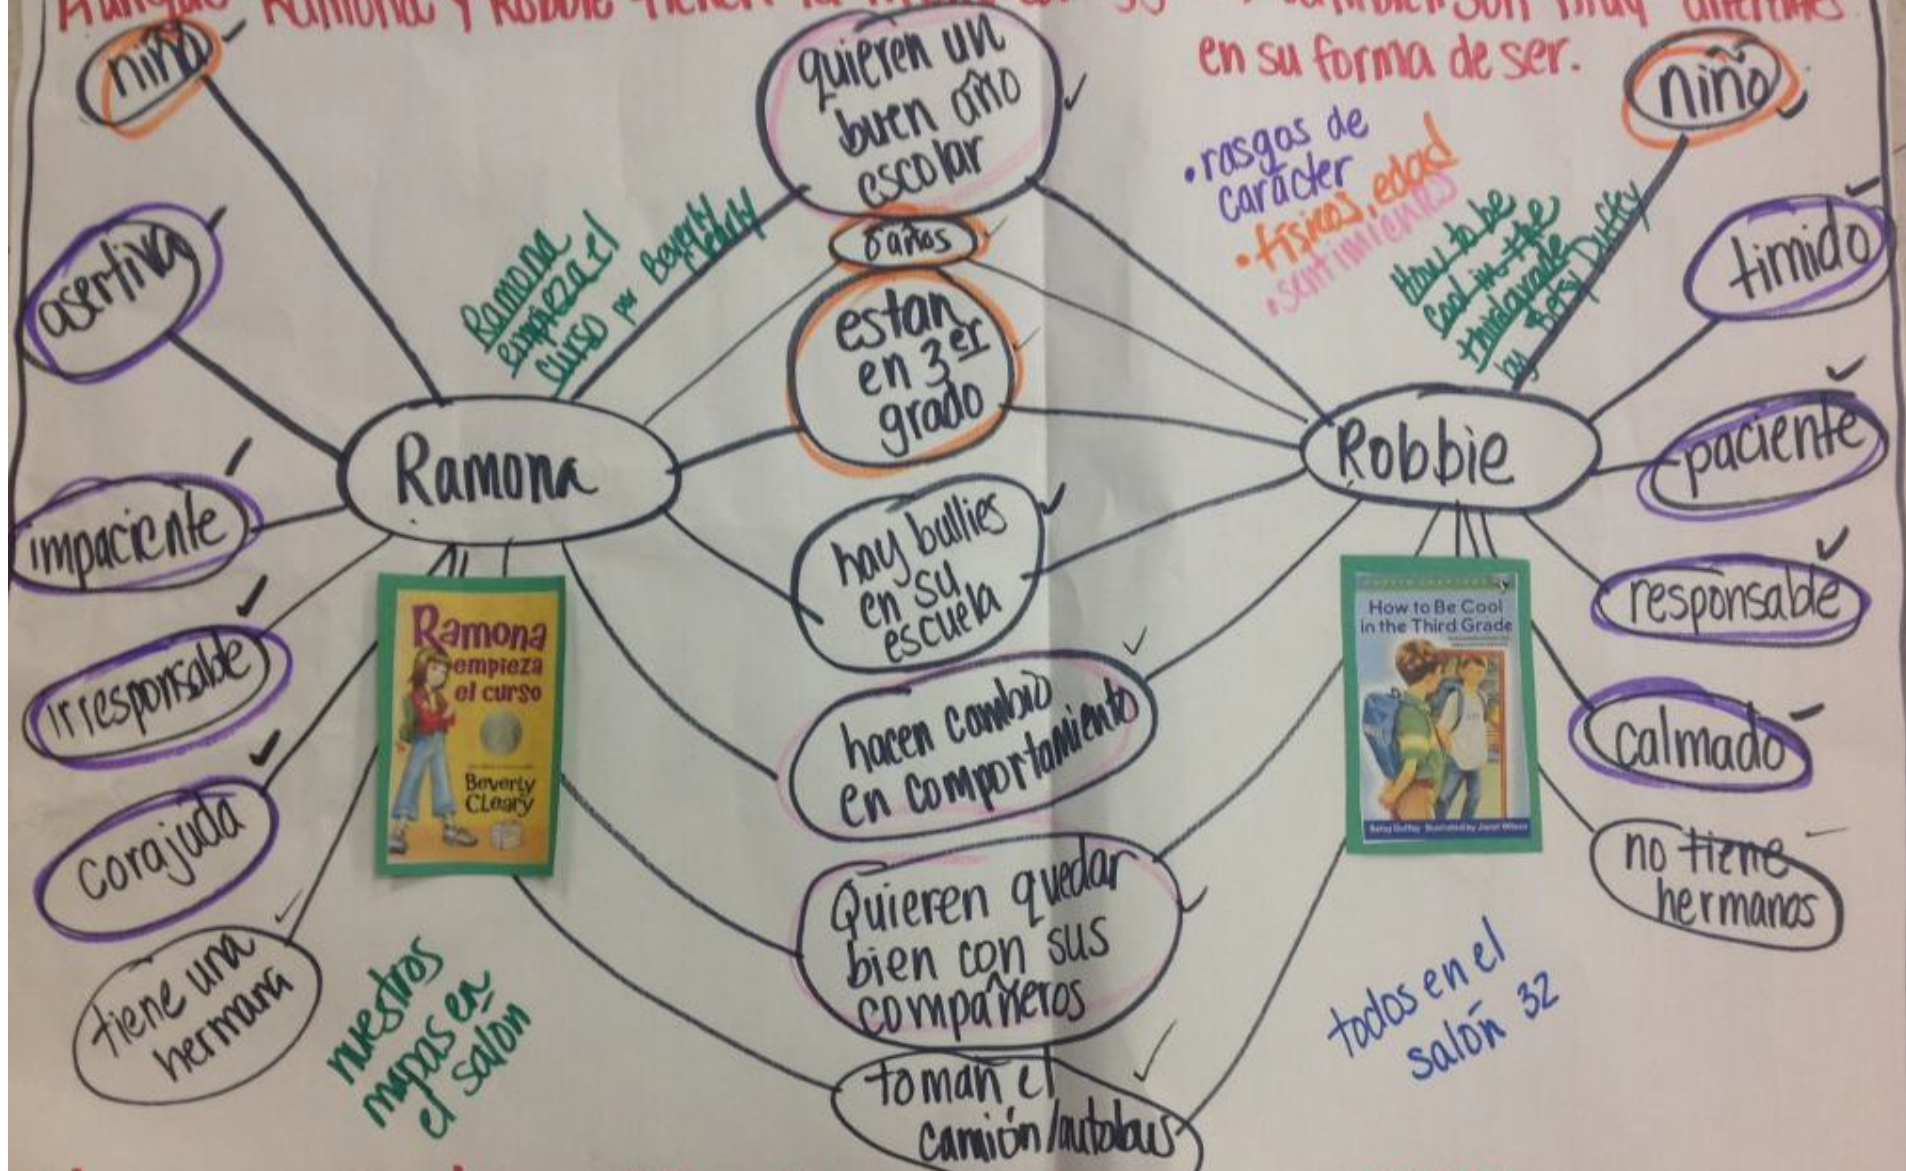 Aunque Ramona y Robbie tienen la misma también son muy diferentes
en su forma de ser.
niña
asertiva
impaciente
irresponsable
corajuda
tiene una
hermana
Ramona
empieza el
curso por Beverly
Cleary
Ramona
Ramona
empieza
el curso
Beverly
Cleary
nuestros
mapas en
el salón
quieren un
buen año
escolar
8 años
estan
en 3er
grado
hay bullies
en su
escuela
hacen cambio
en comportamiento
Quieren quedar
bien con sus
compañeros
toman el
camión/autobus
• rasgos de
carácter
• físicos, edad
• sentimientos
How to be
Cool in the
third grade
by Betsy Duffey
Robbie
How to Be Cool
in the Third Grade
Betsy Duffey Illustrated by Janet Wilson
todos en el
salón 32
niño
timido
paciente
responsable
calmado
no tiene
hermanos